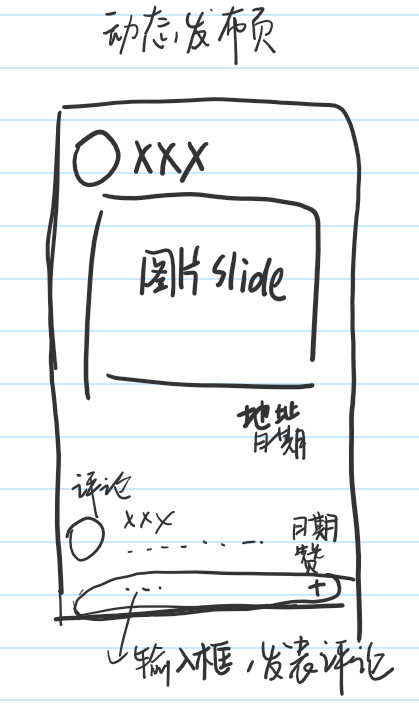 动态发布页
XXX
图片slide
地址
日期
评论
xxx
日期
------
赞
... +
输入框,发装评论